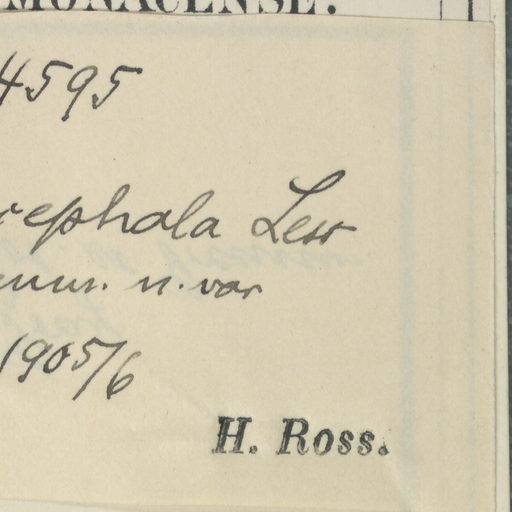 MONACENSE.
4595
cephala Less
n. var
1905/6
H. Ross.